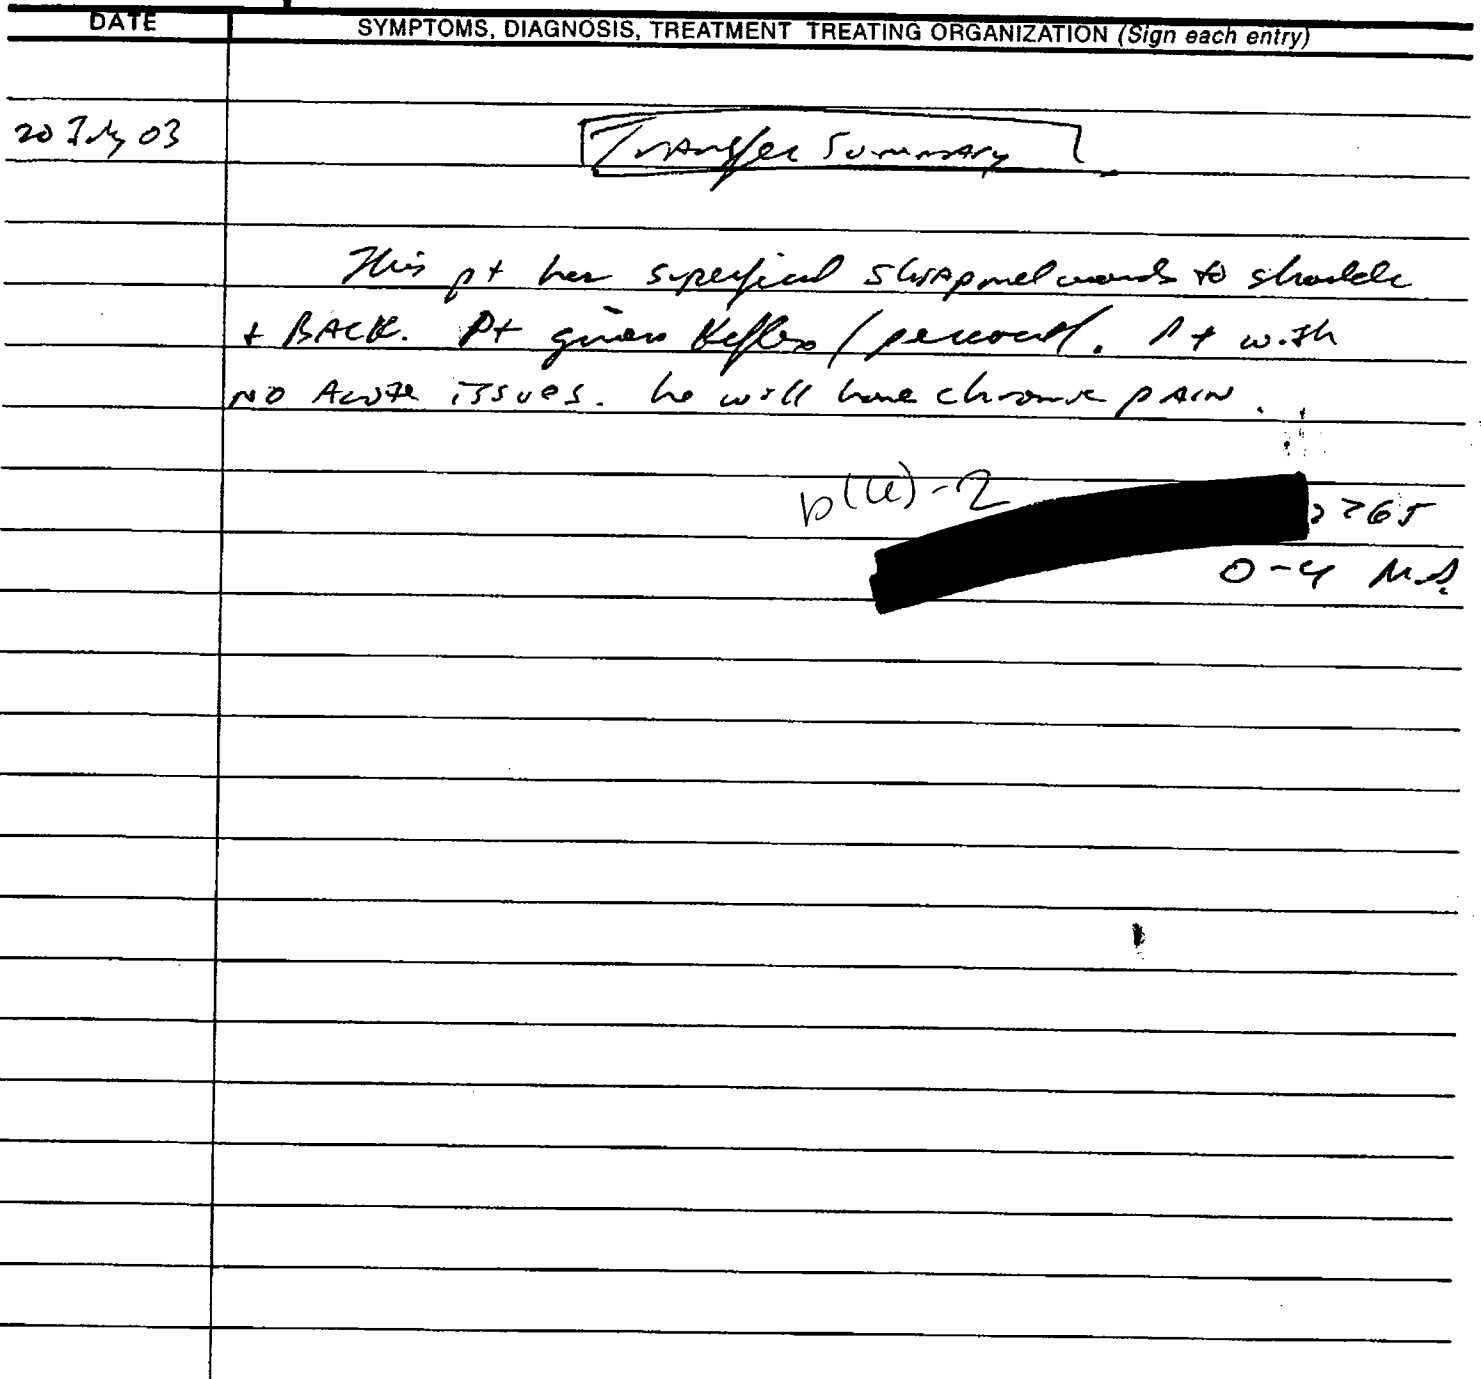 DATE SYMPTOMS, DIAGNOSIS, TREATMENT TREATING ORGANIZATION (Sign each entry)
20 July 03 Transfer Summary
This pt has superficial shrapnel wounds to shoulder
+ BACK. Pt given Keflex / percocet. Pt with
NO Acute issues. he will have chronic pAIN.
b(6)-2
2765
O-4 M.D.